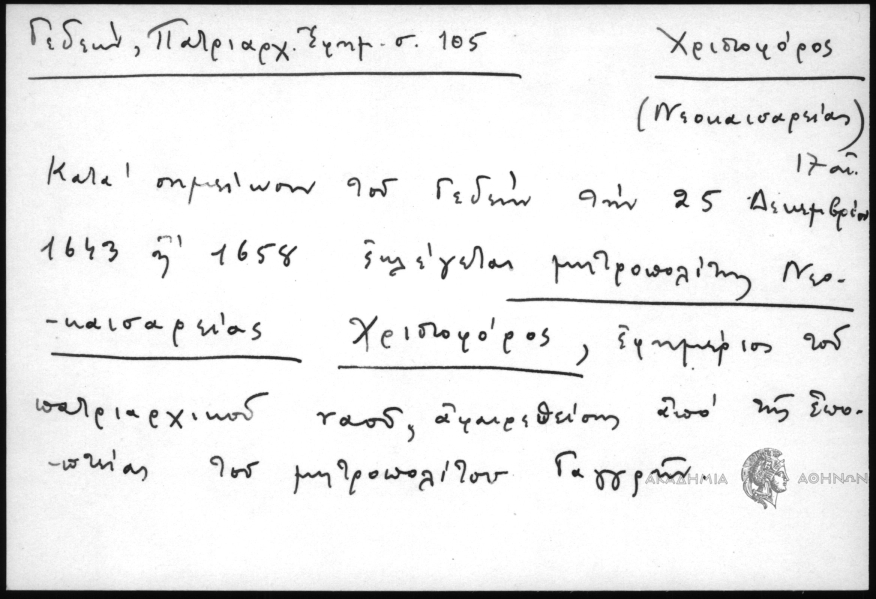 Γεδεών, Πατριαρχ. Ἐφημ. σ. 105
Χριστοφόρος
(Νεοκαισαρείας)
17 αἰ.
Κατὰ σημείωσιν τοῦ Γεδεὼν τὴν 25 Δεκεμβρίου
1643 ἢ 1658 ἐκλέγεται μητροπολίτης Νεο-
-καισαρείας Χριστοφόρος, ἐφημέριος τοῦ
πατριαρχικοῦ ναοῦ, ἀφαιρεθείσης ἀπὸ τῆς ἐπο-
-πτείας τοῦ μητροπολίτου Γαγγρῶν.
ΑΚΑΔΗΜΙΑ ΑΘΗΝΩΝ